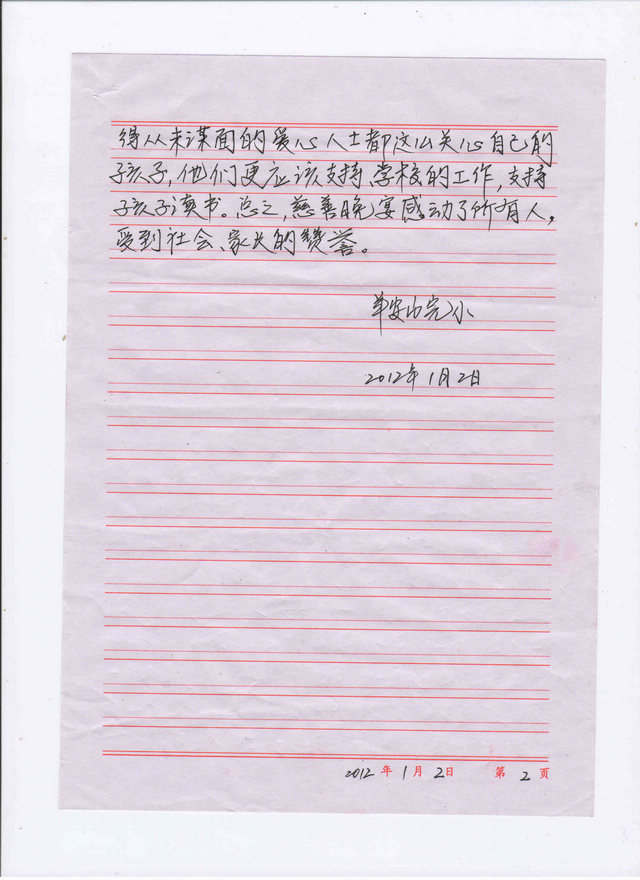 得从未谋面的爱心人士都这么关心自己的
孩子,他们更应该支持学校的工作,支持
孩子读书。总之,慈善晚宴感动了所有人,
受到社会、家长的赞誉。
安山完小
2012年1月2日
2012年1月2日 第2页